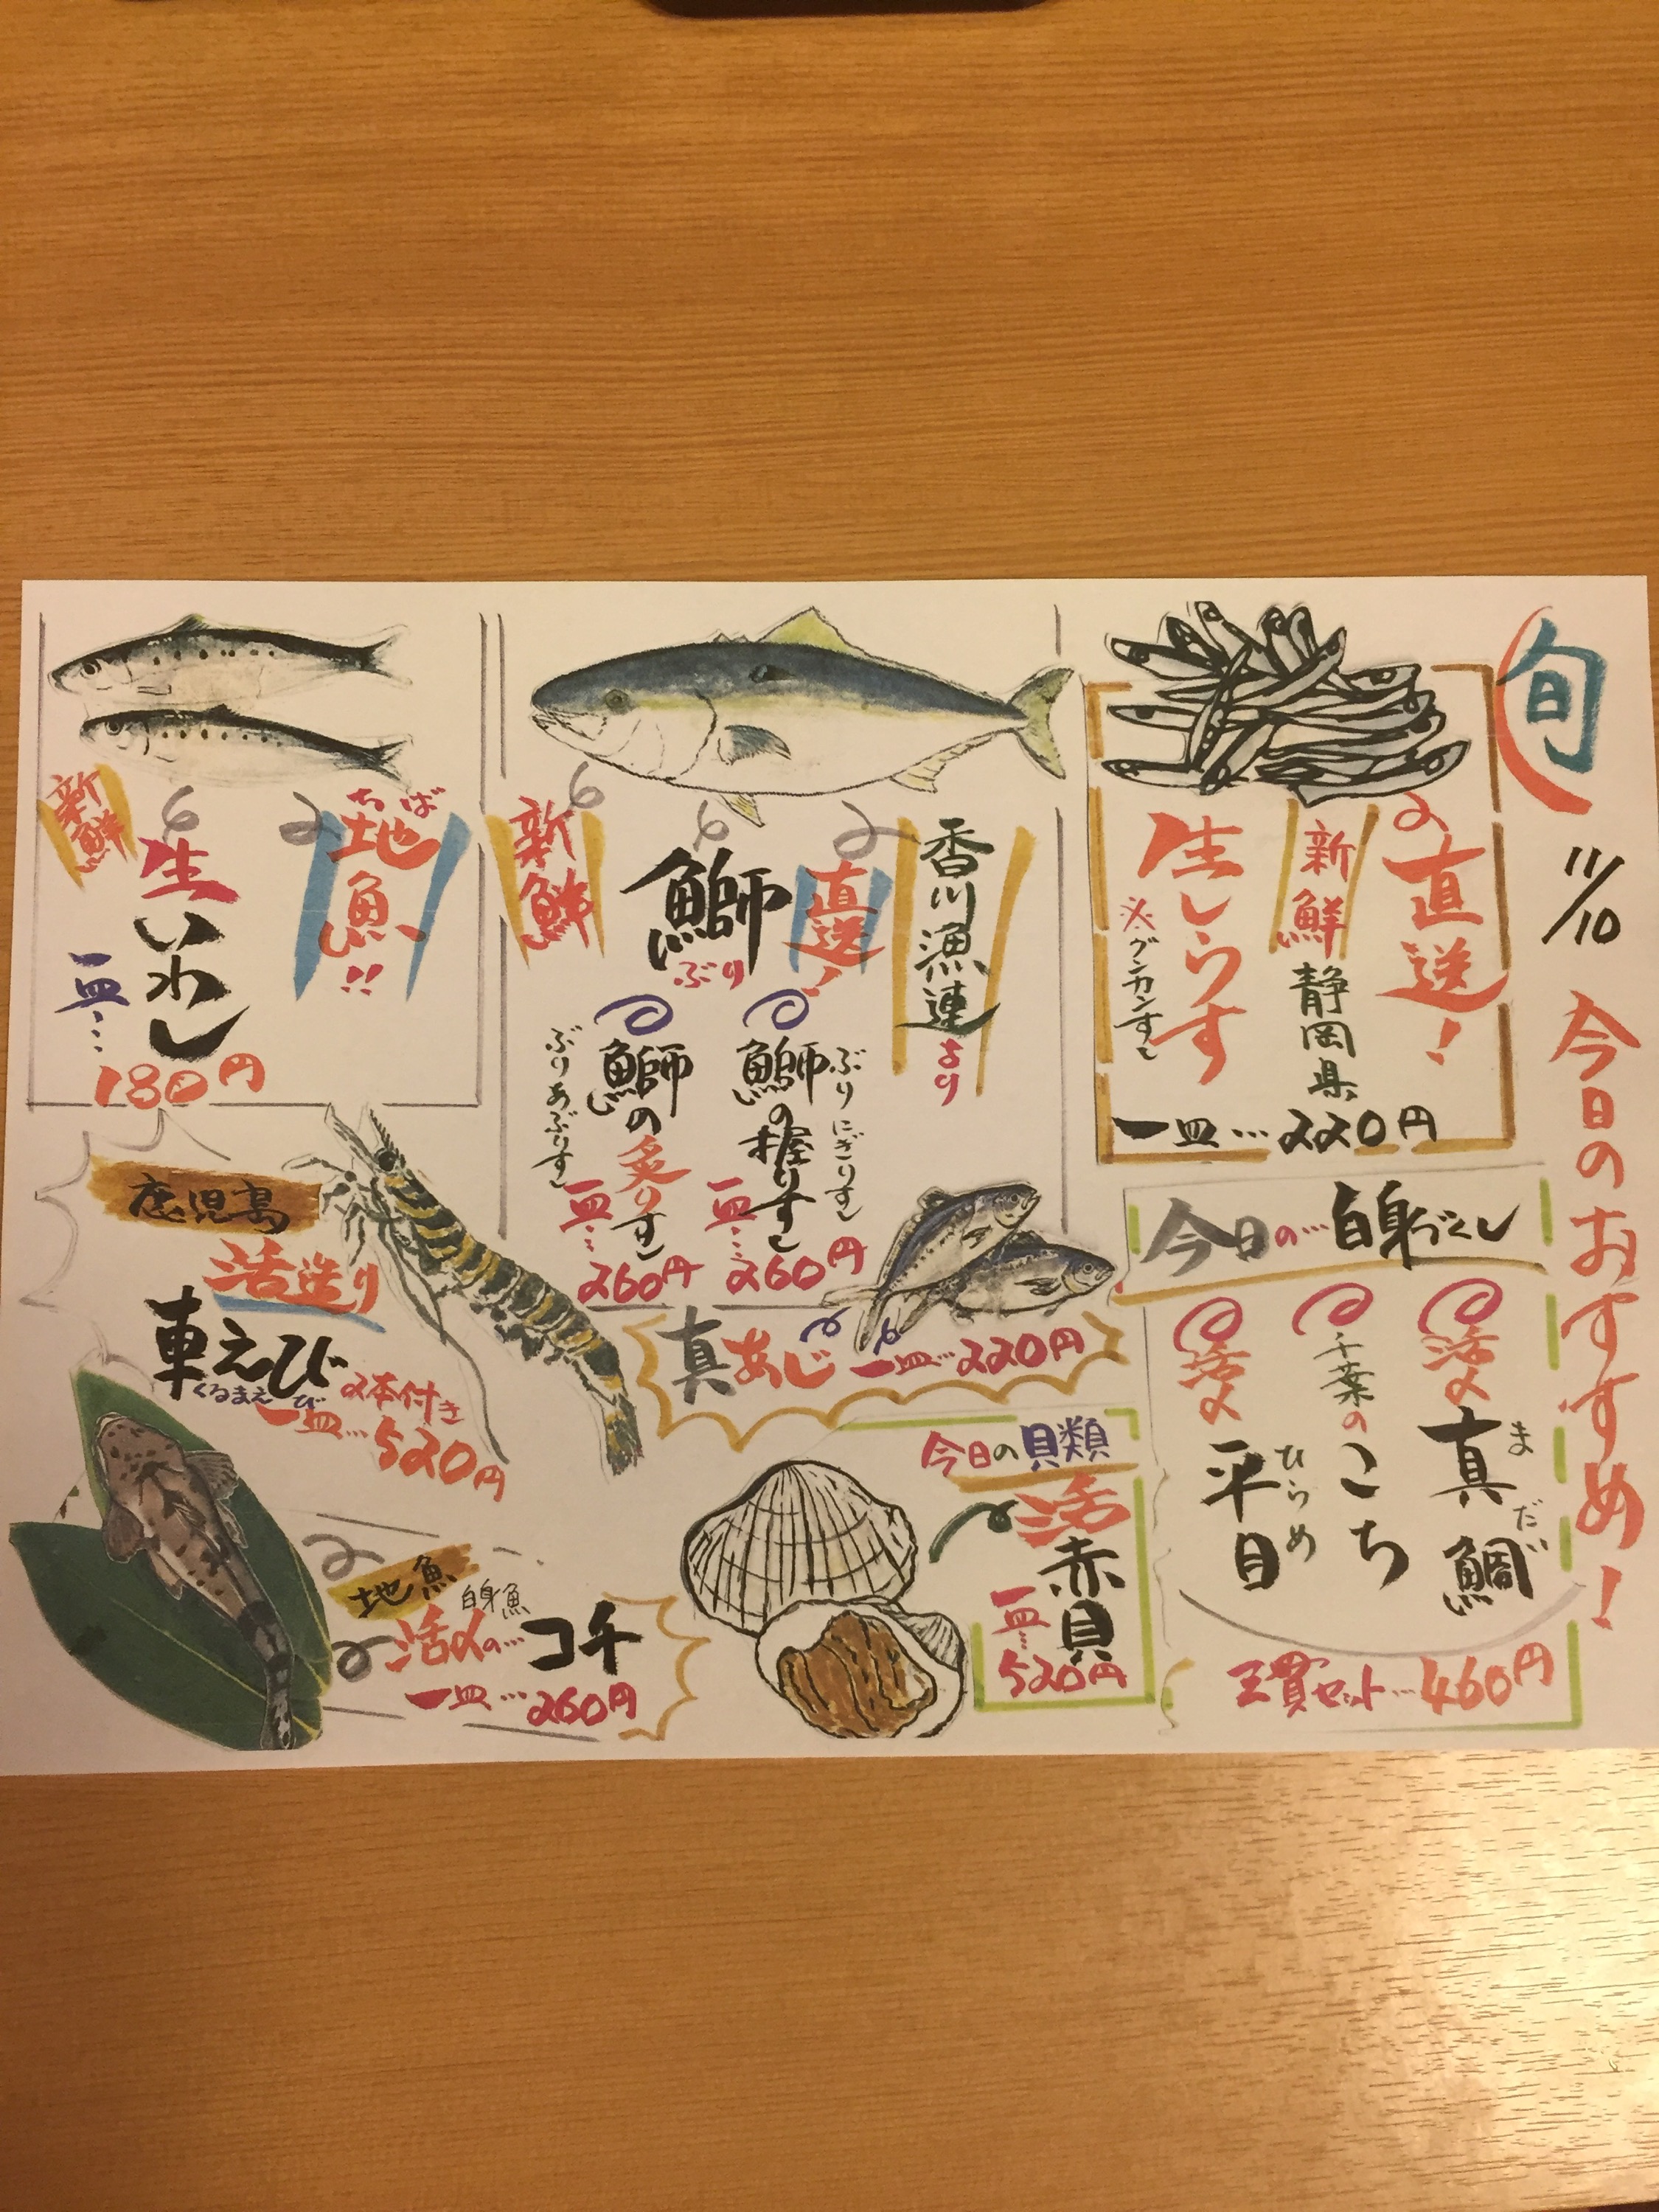 旬
11/10
今日のおすすめ!
直送!
新鮮
静岡県
生しらす
※グンカンすし
一皿…220円
今日の…白身づくし
活〆
真鯛
まだい
千葉の
こち
活〆
平目
ひらめ
三貫セット…460円
香川漁連より
直送!
鰤
ぶり
新鮮
鰤の握りすし
ぶりにぎりすし
一皿…260円
鰤の炙りすし
ぶりあぶりすし
一皿…260円
真あじ
一皿…220円
今日の貝類
活
赤貝
一皿…520円
ちば
地魚!!
新鮮
生いわし
一皿…
180円
鹿児島
活造り
車えび
くるまえび
2本付き
一皿…520円
地魚
白身魚
活〆の…コチ
一皿…260円